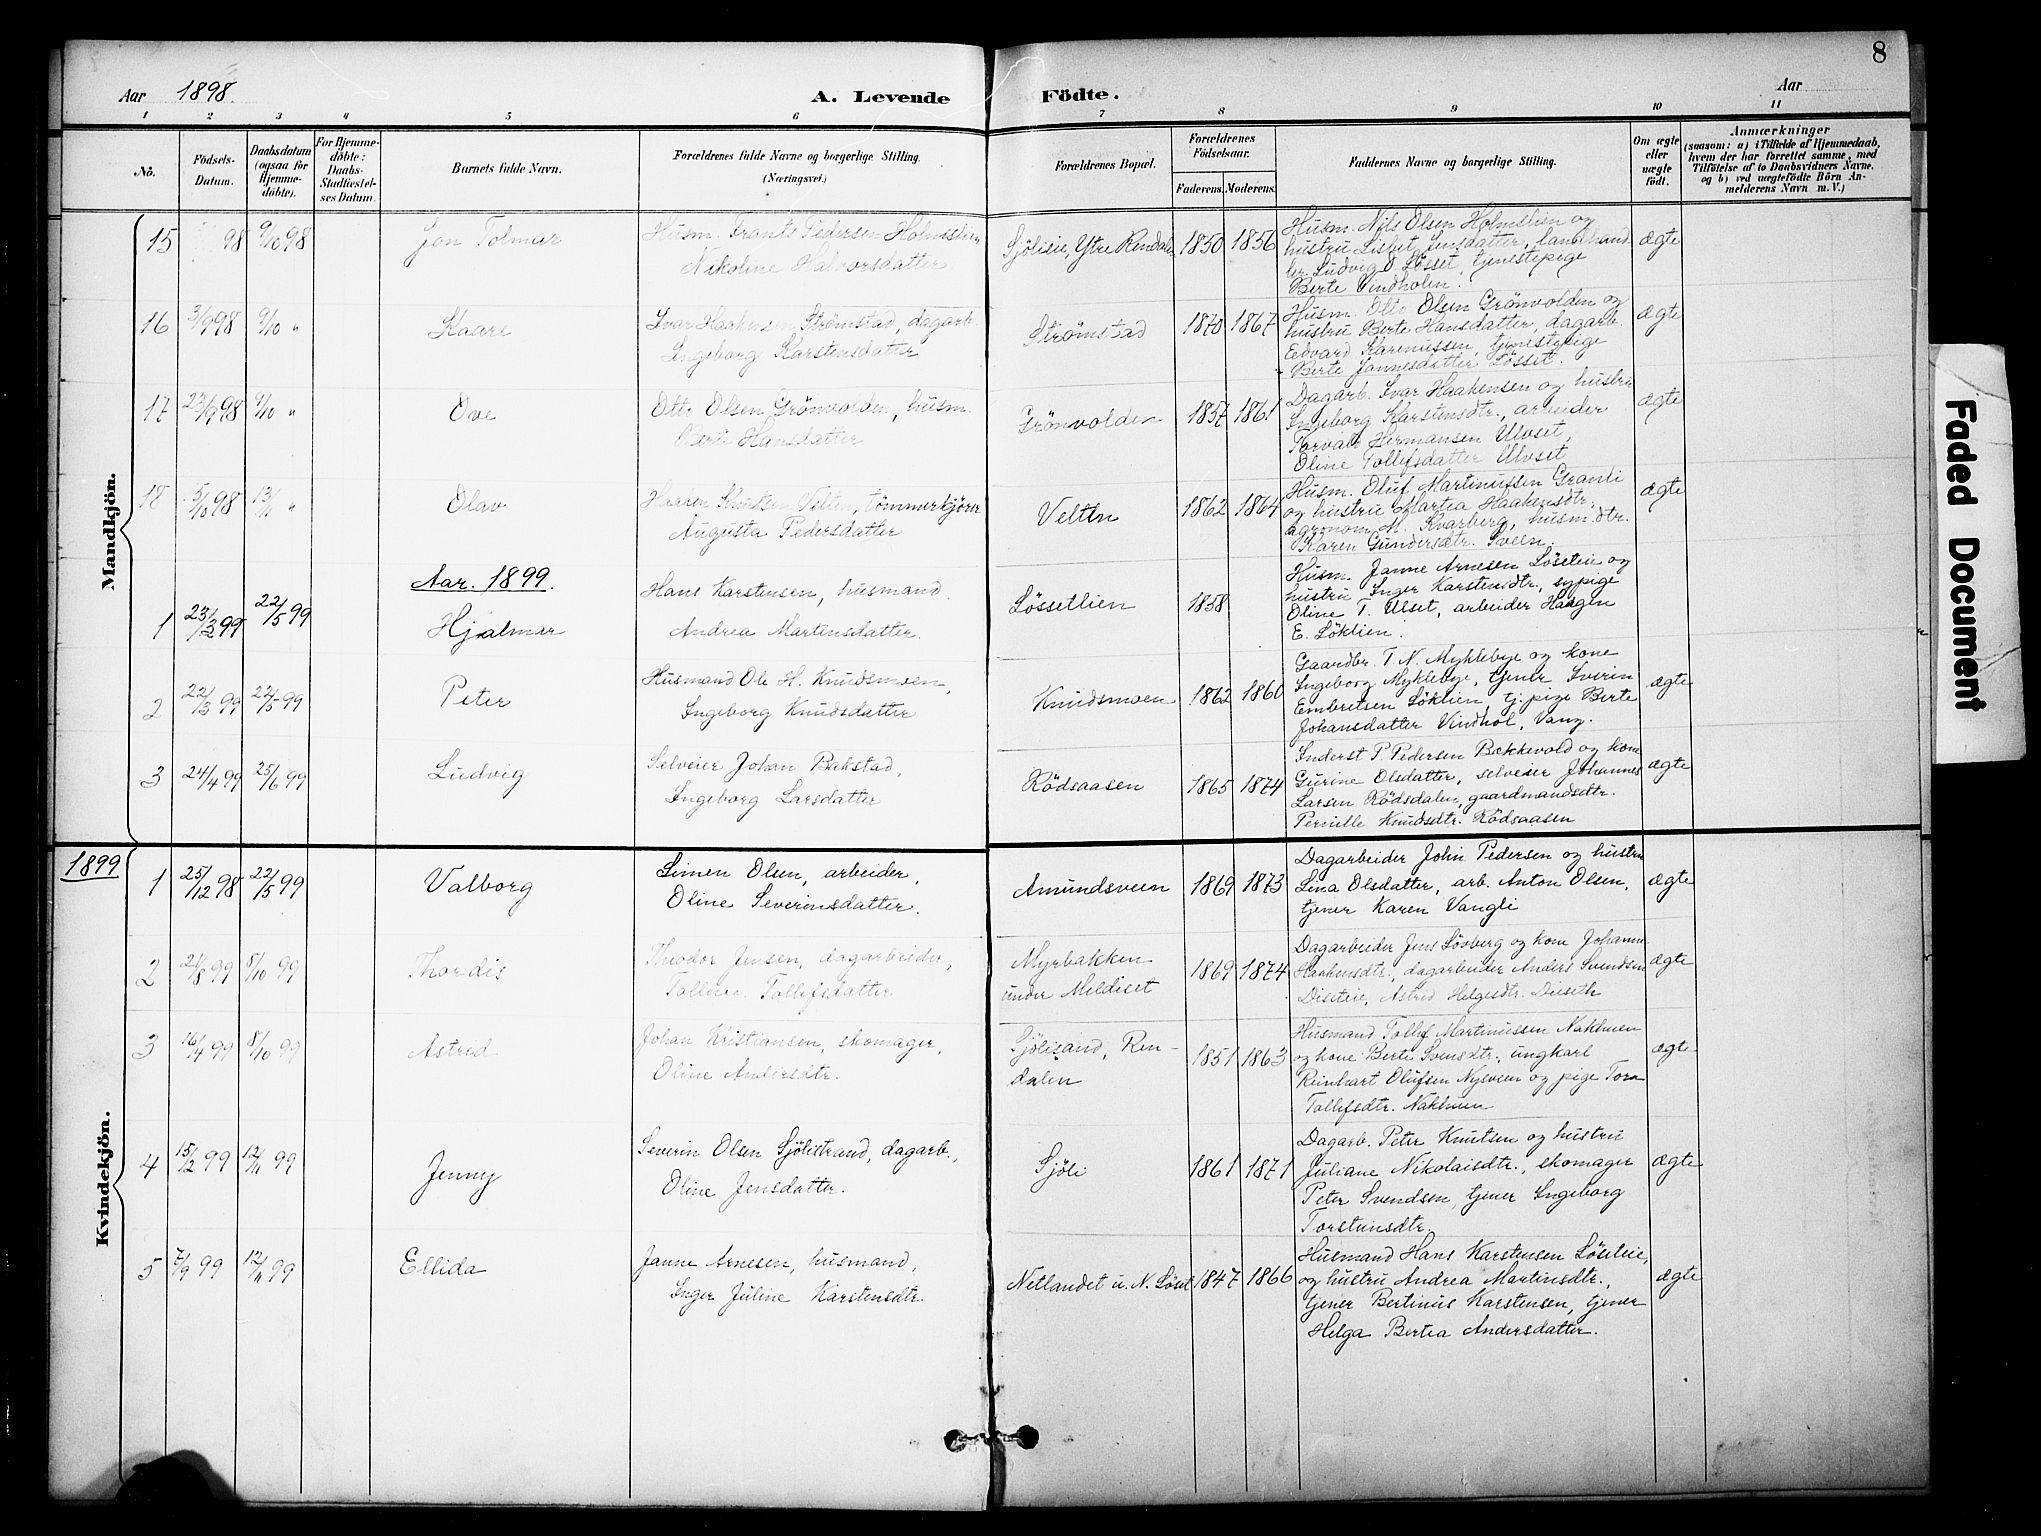 8
Aar 1898.
A. Levende Födte.
Aar
1 2 3 4 5 6 7 8 9 10 11
No.
Födsels-
Datum.
Daabsdatum
(ogsaa for
Hjemme-
döbte).
For Hjemme-
döbte:
Daabs-
Stadfæstel-
ses Datum.
Barnets fulde Navn.
Forældrenes fulde Navne og borgerlige Stilling.
(Næringsvei.)
Forældrenes Bopæl.
Forældrenes
Födselsaar.
Faderens. Moderens.
Faddernes Navne og borgerlige Stilling.
Om ægte
eller
uægte
födt.
Anmærkninger
(saasom: a) i Tilfælde af Hjemmedaab,
hvem der har forrettet samme, med
Tilföielse af to Daabsvidners Navne.
og b) ved uægtefödte Börn An-
melderens Navn m. V.)
Mandkjön.
15 98 9/10 98 Jon Tolmar
Husm. Frants Pedersen Holmslien
Nikoline Halvorsdatter
Sjöliseie, Ytre Rendalen 1850 1856
Husm. Nils Olsen Holmslien og
hustru Lisbet Jensdatter, landhand-
ler Ludvig O. Lösset, tjenestepige
Berte Vindholen.
ægte
16 3/9 98 9/10 " Kaare
Ivar Haakensen Strømstad, dagarb.
Ingeborg Karstensdatter
Strømstad 1870 1867
Husm. Otto Olsen Grønvolden og
hustru Berte Hansdatter, dagarb.
Edvard Karenussen, tjenestepige
Berte Jannesdatter Lösset.
ægte
17 23/9 98 9/10 " Ove
Otto Olsen Grönvolden, husm.
Berte Hansdatter
Grönvolden 1857 1861
Dagarb. Ivar Haakensen og hustru
Ingeborg Karstensdtr., arbeider
Torvald Hermansen Ulvset,
Oline Tollefsdatter Ulvset
ægte
18 5/10 98 13/11 " Olav
Haaken Knutsen Velten, tømmerkjörer
Augusta Pedersdatter
Velten 1862 1864
Husm. Oluf Martinussen Granli
og hustru Martea Haakensdtr.,
agronom M. Kvarberg, husm.dtr.
Karen Gundersdtr. Sveen.
ægte
Aar. 1899.
1 23/3 99 22/5 99 Hjalmar
Hans Karstensen, husmand.
Andrea Martinsdatter.
Lössetlien 1858
Husm. Janne Arnesen Löseteie og
hustru Inger Karstensdtr, sypige
Oline T. Ulset, arbeider Haagen
E. Löklien.
2 22/3 99 22/5 99 Peter
Husmand Ole H. Knudsmoen,
Ingeborg Knudsdatter
Knudsmoen 1862 1860
Gaardbr. T. N. Myklebye og kone
Ingeborg Myklebye, tjener Iverin
Embretsen Löklien tj. pige Berte
Johansdatter Vindhol, Vang.
ægte
3 24/4 99 25/6 99 Ludvig
Selveier Johan Bakstad,
Ingeborg Larsdatter
Rödsaasen 1865 1874
Inderst P. Pedersen Bækkevold og kone
Gurine Olsdatter, selveier Johannes
Larsen Rödsdalen, gaardmandsdtr.
Pernille Knudsdtr. Rödsaasen
ægte
Kvindekjön.
1899
1 25/12 98 22/5 99 Valborg
Simen Olsen, arbeider,
Oline Severinsdatter.
Amundsveen 1869 1873
Dagarbeider John Pedersen og hustru
Lina Olsdatter, arb. Anton Olsen,
tjener Karen Vangli
ægte
2 2/8 99 8/10 99 Thordis
Theodor Jensen, dagarbeider,
Tolline Tollefsdatter
Myrbakken
under Meldiset
1869 1874
Dagarbeider Jens Lövberg og kone Johanne
Haakensdtr., dagarbeider Anders Svendsen
Diseteie, Astrid Helgesdtr. Diseth
ægte
3 16/4 99 8/10 99 Astrid
Johan Kristiansen, skomager,
Oline Andersdtr.
Sjölisand, Ren-
dalen
1851 1863
Husmand Tollef Martinussen Nakhuen
og kone Berte Svensdtr., ungkarl
Reinhart Olufsen Nysveen og pige Tora
Tollefsdtr. Nakhuen
ægte
4 15/2 99 12/11 99 Jenny
Severin Olsen Sjölistrand, dagarb.,
Oline Jensdatter.
Sjöli 1861 1871
Dagarb. Peter Knutsen og hustru
Juliane Nikolaisdtr., skomager
Peter Svendsen, tjener Ingeborg
Torstensdtr.
ægte
5 7/9 99 12/11 99 Ellida
Janne Arnesen, husmand,
Inger Juline Karstensdtr.
Netlandet u. N. Löset 1847 1866
Husmand Hans Karstensen Löseteie,
og hustru Andrea Martinsdtr.,
tjener Bertinus Karstensen, tjener
Helga Bertea Andersdatter.
ægte
Faded Document